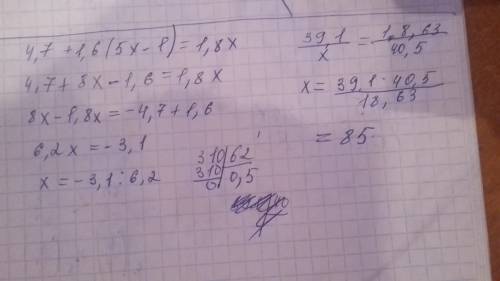 4,7 + 1,6(5x - 1) = 1,8x
4,7 + 8x - 1,6 = 1,8x
8x - 1,8x = -4,7 + 1,6
6,2x = -3,1
x = -3,1 : 6,2
310 | 62
310 | 0,5
0
39,1 / x = 1,8,63 / 40,5
x = 39,1 · 40,5 / 18,63
= 85